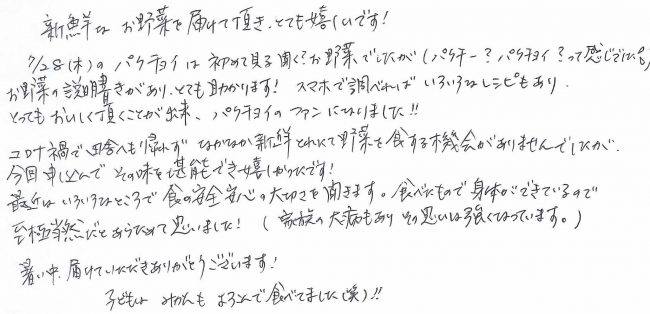 新鮮な お野菜を届けて頂き、とても嬉しいです!
7/28(木)の パクチョイは 初めて見る聞く?お野菜でしたが(パクチー?パクチョイ?って感じでした。)
お野菜の説明書きがあり、とても助かります! スマホで調べれば いろいろなレシピもあり、
とってもおいしく頂くことが出来、パクチョイの ファンになりました!!
コロナ禍で 田舎へも帰れず なかなか新鮮とれたて野菜を食する機会がありませんでしたが、
今回申込んで その味を堪能でき嬉しかったです!
最近は いろいろなところで 食の安全安心の大切さを聞きます。食べたもので身体ができているので
至極当然だとあらためて思いました! (家族の大病もあり その思いは強くなっています。)
暑い中、届けていただきありがとうございます!
子どもは みかんも よろこんで食べてました(笑)!!